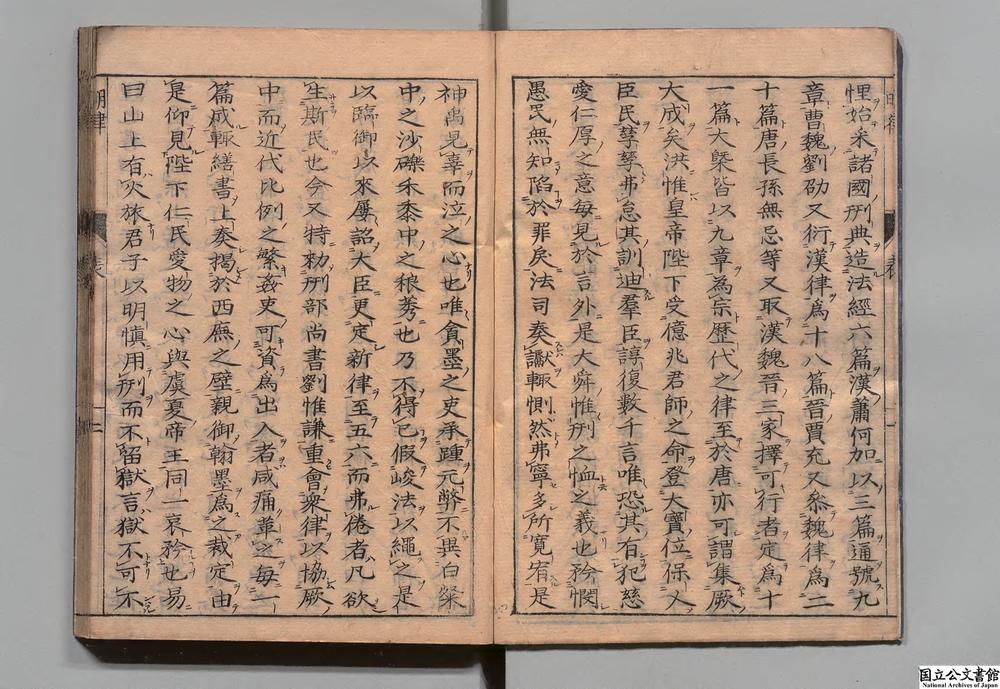 悝始采諸國刑典造法經六篇漢蕭何加以三篇通號九
章曹魏劉劭又衍漢律爲十八篇晉賈充又叅魏律爲二
十篇唐長孫無忌等又取漢魏晉三家擇可行者定爲十
一篇大槩皆以九章為宗歴代之律至於唐亦可謂集厥
大成矣洪惟皇帝陛下受億兆君師之命登大寶位保乂
臣民孳孳弗怠其訓迪羣臣諄復數千言唯恐其有犯慈
愛仁厚之意每見於言外是大舜惟刑之恤之義也矜憫
愚民無知陷於罪戻法司奏讞輒惻然弗寧多所寛宥是
神禹見辜而泣之心也唯貪墨之吏承踵元弊不異白粲
中之沙礫禾黍中之稂莠也乃不得已假峻法以繩之是
以臨御以來屢詔大臣更定新律至五六而弗倦者凡欲
生斯民也今又特勑刑部尚書劉惟謙重會衆律以協厥
中而近代比例之繁姦吏可資爲出入者咸痛革之每一
篇成輒繕書上奏揭於西廡之壁親御翰墨爲之裁定由
是仰見陛下仁民愛物之心與虞夏帝王同一哀矜也易
曰山上有火旅君子以明慎用刑而不留獄言獄不可不
明律
表
二
表
一
国立公文書館
National Archives of Japan